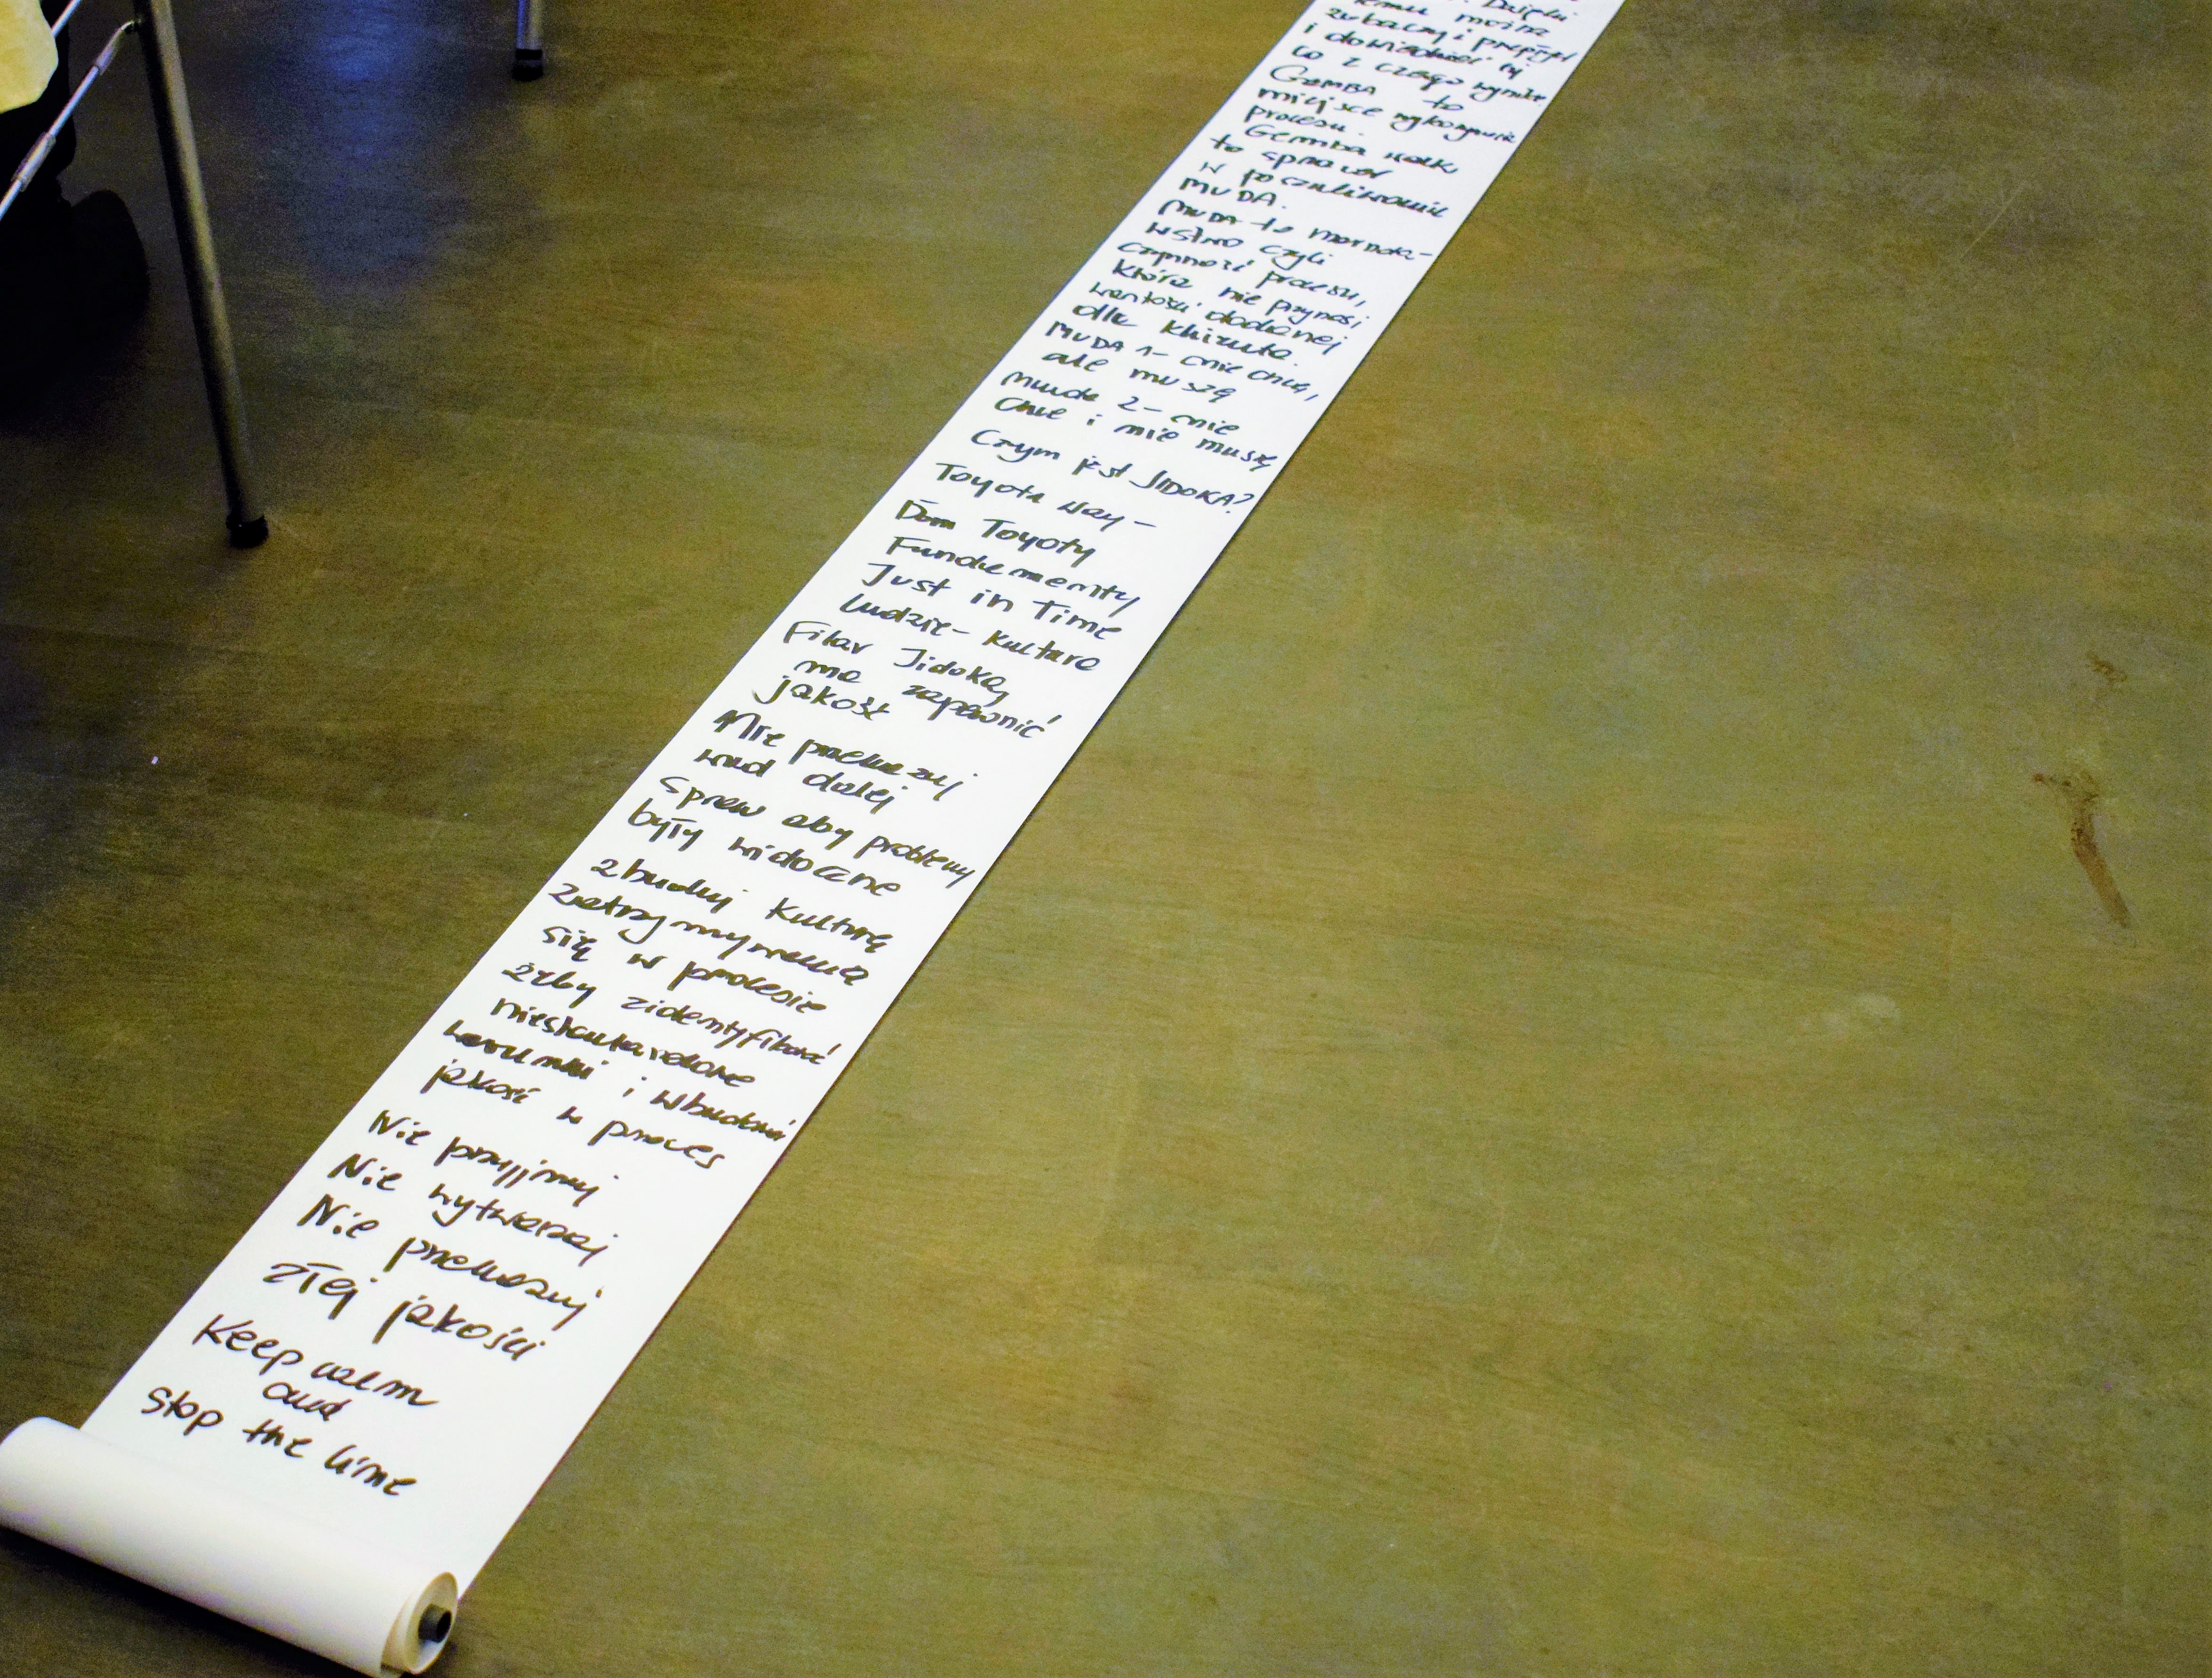 Dzięki
temu można
zobaczyć przepływ
i dowiedzieć się
co z czego wynika
GEMBA to
miejsce wykonywania
procesu.
Gemba walk
to spacer
w poszukiwaniu
MUDA.
MUDA to marnotra-
wstwo czyli
czynność procesu,
która nie przynosi
wartości dodanej
dla klienta
MUDA 1- nie chcę,
ale muszę
Muda 2- nie
chcę i nie muszę
Czym jest JIDOKA?
Toyota Way -
Dom Toyoty
Fundamenty
Just in Time
Ludzie- kultura
Filar Jidoką
ma zapewnić
jakość
Nie przekazuj
wad dalej
Spraw aby problemy
były widoczne
Zbuduj kulturę
zatrzymywania
się w procesie
żeby zidentyfikować
niestandardowe
warunki i wbudować
jakość w proces
Nie przyjmuj
Nie wytwarzaj
Nie przekazuj
złej jakości
Keep calm
and
stop the line